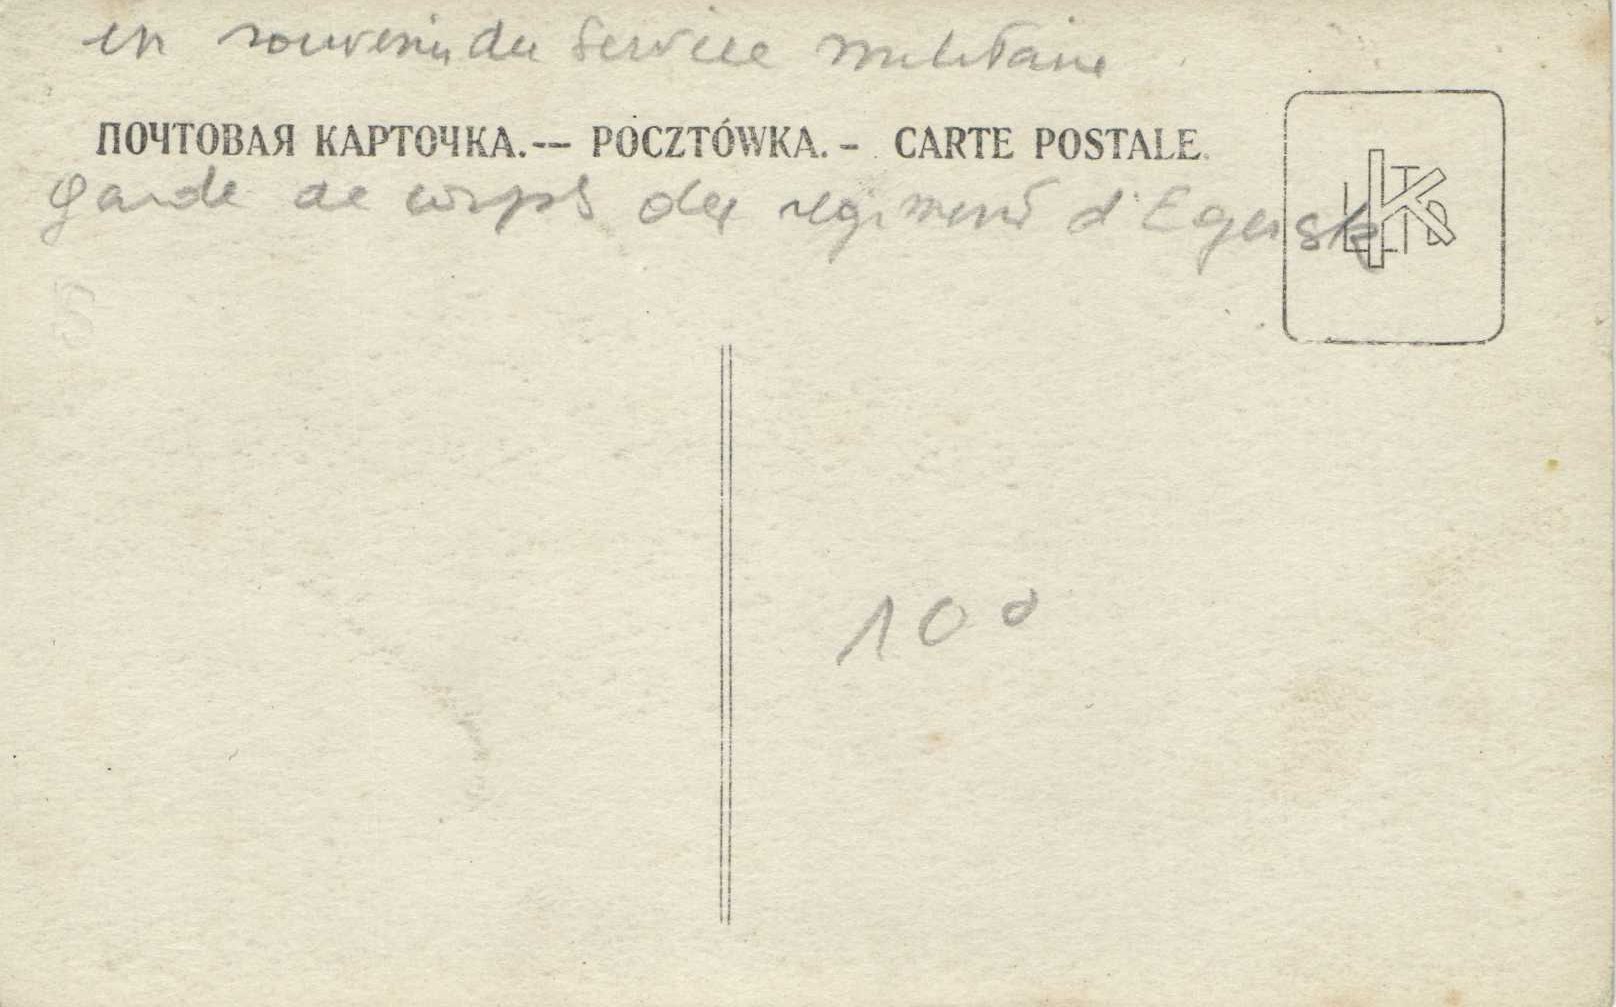 en souvenir du service militaire
ПОЧТОВАЯ КАРТОЧКА.-— POCZTÓWKA. - CARTE POSTALE.
garde de corps du regiment d'Egersk
100